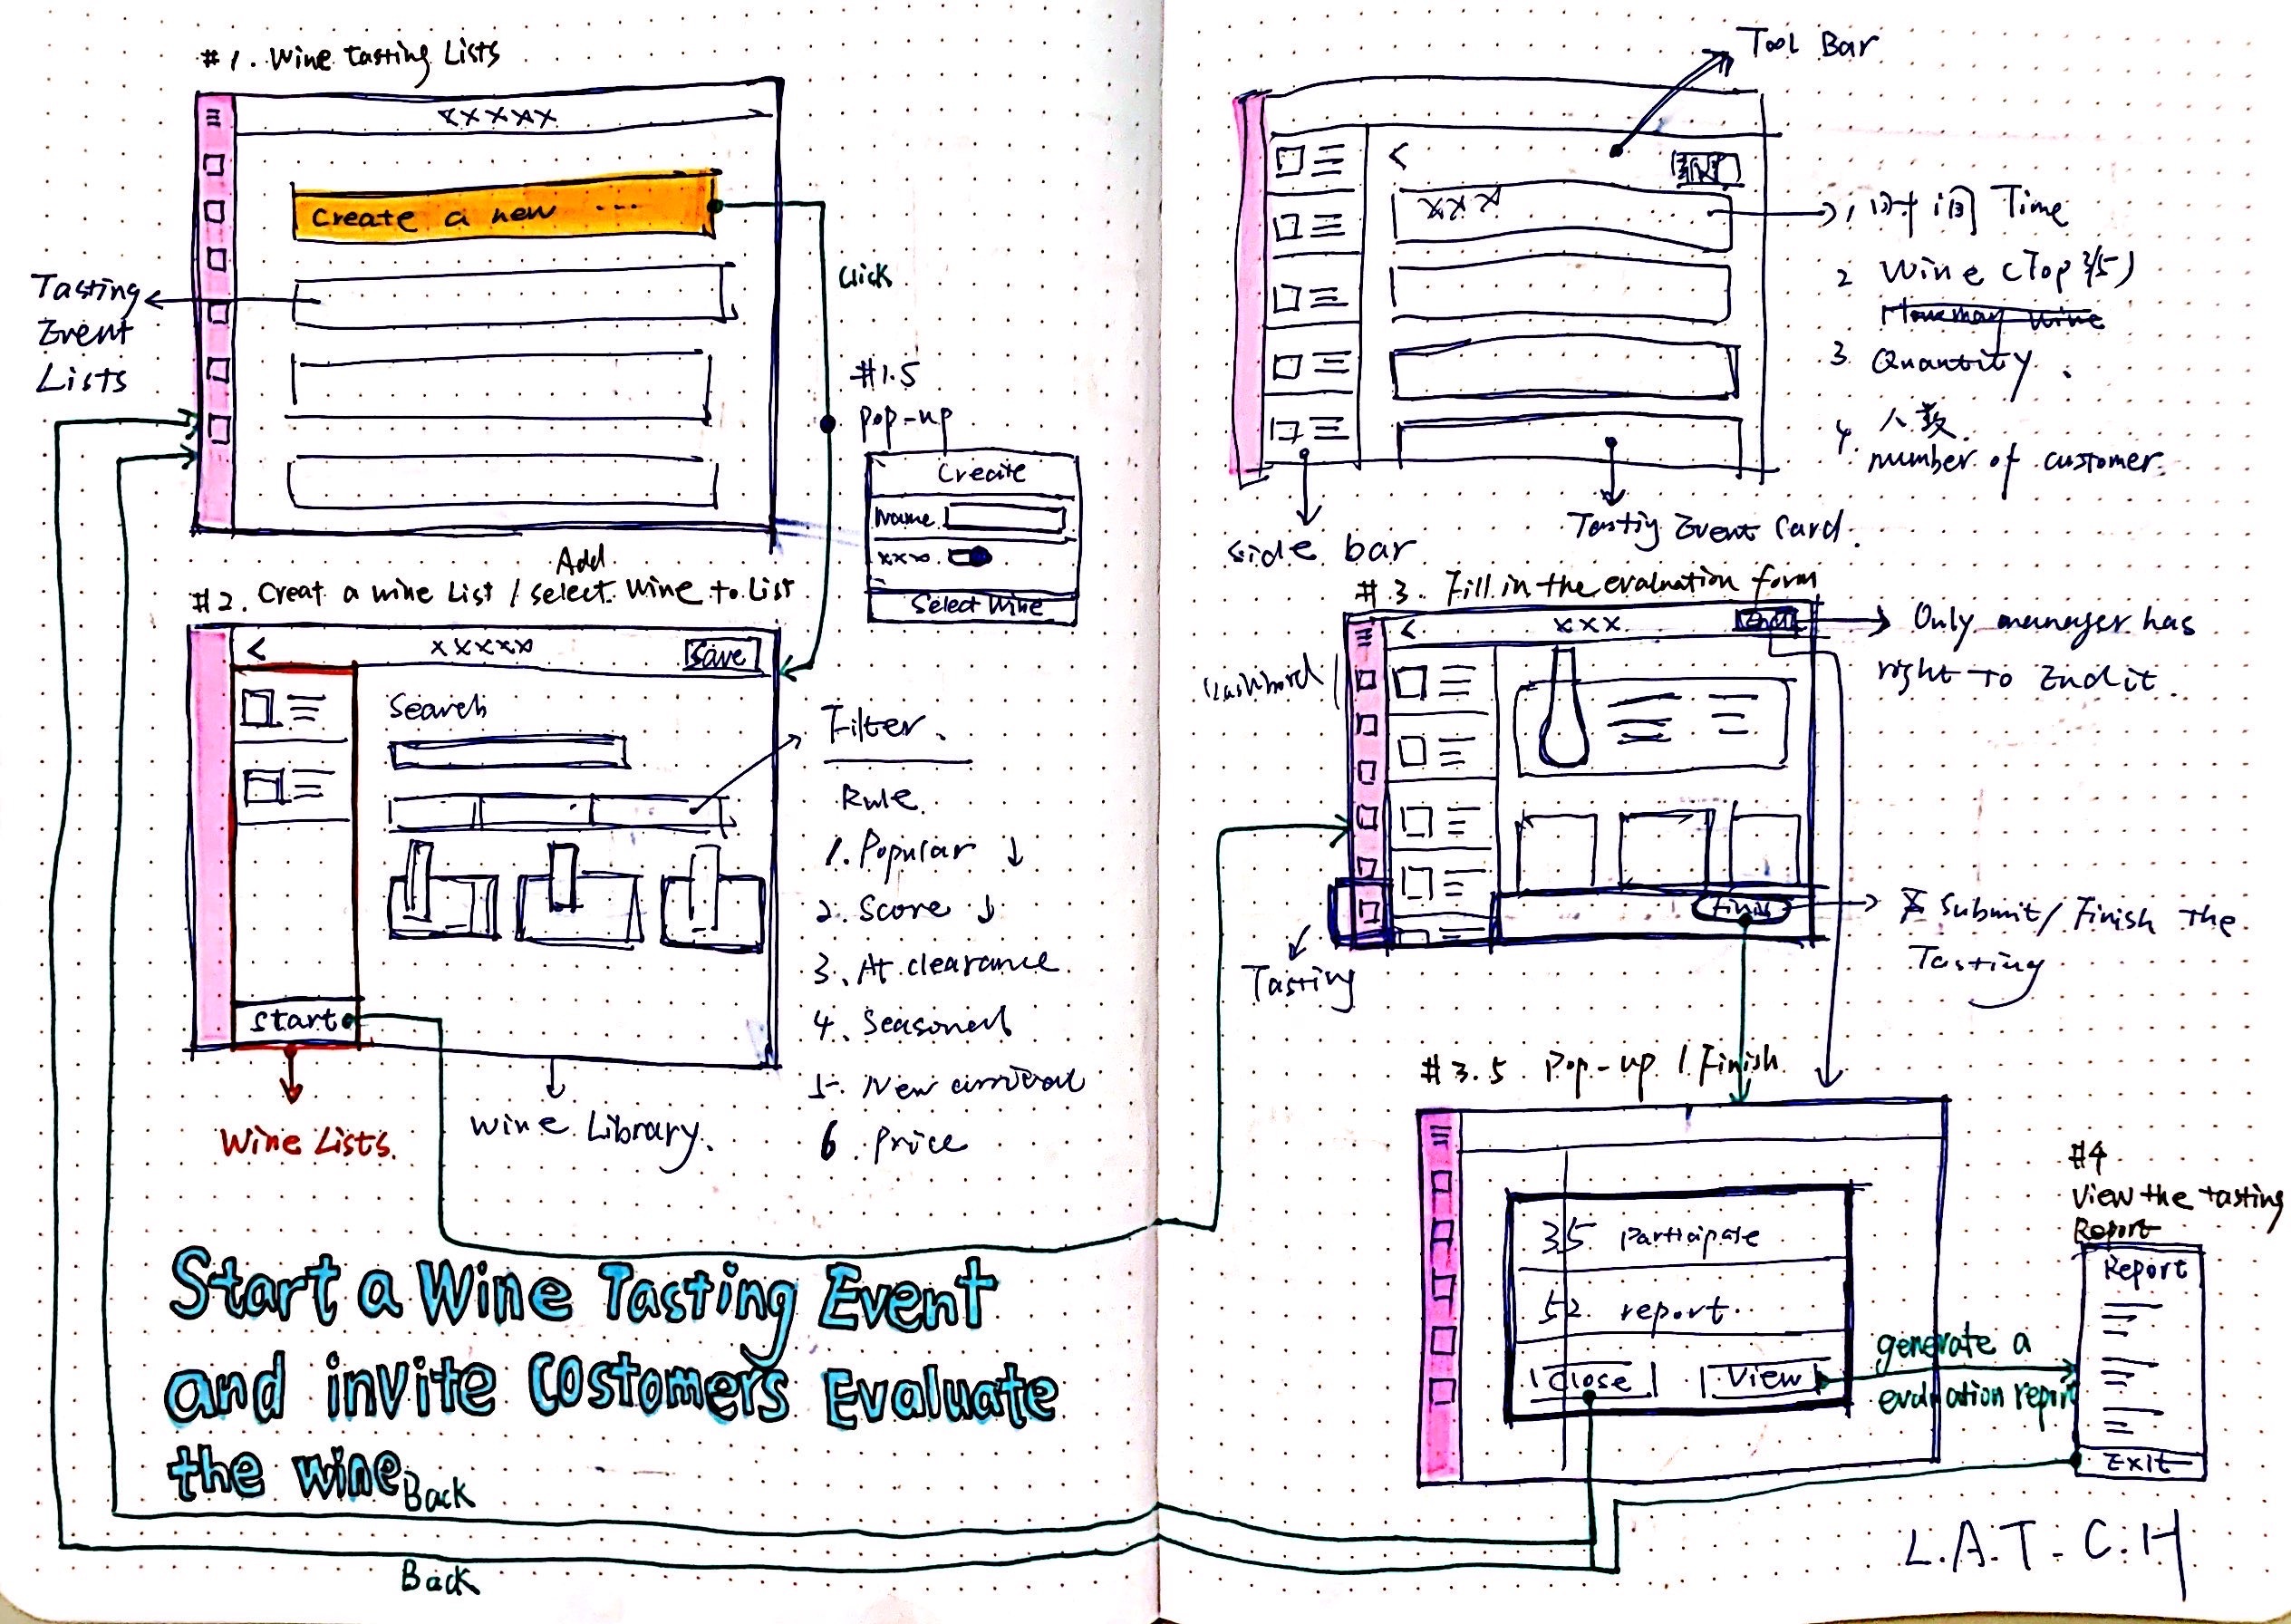 #1. Wine Tasting Lists
xxxxx
Create a new ...
Tasting
Event
Lists
Click
#1.5
Pop-up
Create
Name
xxx
Select Wine
Add
#2. Creat a wine List / select Wine to List
<
xxxxx
Save
Search
Start
Wine Lists.
Wine Library.
Filter.
Rule.
1. Popular ↓
2. Score ↓
3. At clearance
4. Seasoned
5. New arrival
6. Price
Start a Wine Tasting Event
and invite Costomers Evaluate
the wine
Back
Back
Tool Bar
<
xxx
1, 时间 Time
2 Wine (Top 3/5)
3. Quantity.
4. 人数
number of customer.
side bar
Tastig Event Card.
#3. Fill in the evaluation form
<
xxx
End
Only manager has
right to End it.
Dashbord
Finis
Submit / Finish the
Tasting
Tasting
#3.5. Pop-up / Finish
35 participate
52 report.
Close
View
generate a
evaluation report
#4
View the tasting
Report
Report
Exit
L.A.T.C.H